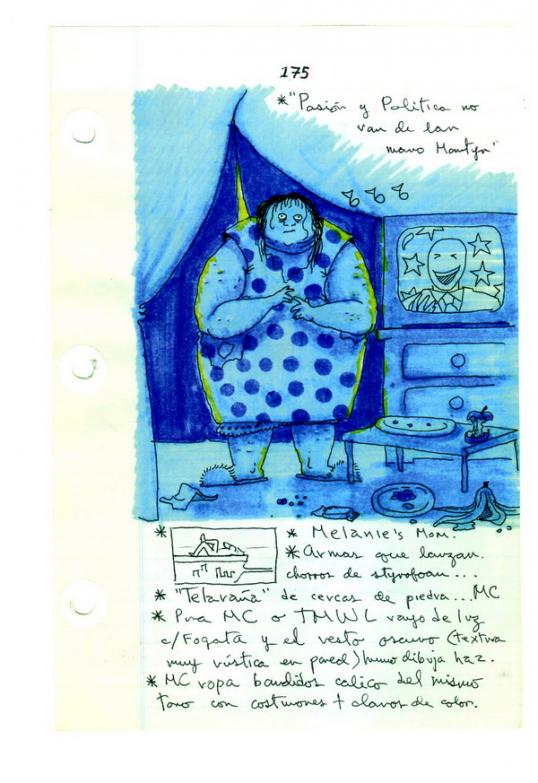 175
*"Pasión y Politica no
van de lan
mano Montyn"
* Melanie's Mom.
* Armas que lanzan.
chorros de styrofoan...
* "Telaraña" de cercas de piedra...MC
* Para MC o TMWL rayo de luz
c/Fogata y el resto oscuro (textura
muy rústica en pared) humo dibuja haz.
* MC ropa bandidos calico del mismo
tono con costurones + claros de color.